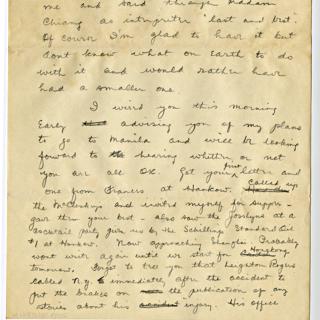 me and said through Madam
Chiang as intrepriter "last and best".
Of course I'm glad to have it but
don't know what on Earth to do
with it and would rather have
had a smaller one.
I wired you this morning
Early advising you of my plans
to go to Manila and will be looking
forward to hearing whether or not
you are all OK. Got your first letter and
one from Frances at Hankow. Called up
the McCurdys and invited myself for supper -
gave them your best - also saw the Josslyns at a
cocktail party given us by the Schillings Standard Oil
#1 at Hankow. Now approaching Shanghai. Probably
wont write again until we start for Hongkong
tomorrow. Forgot to tell you that Leighton Rogers
cabled N.Y. immediately after the accident to
put the brakes on the publication of any
stories about his injury. His office